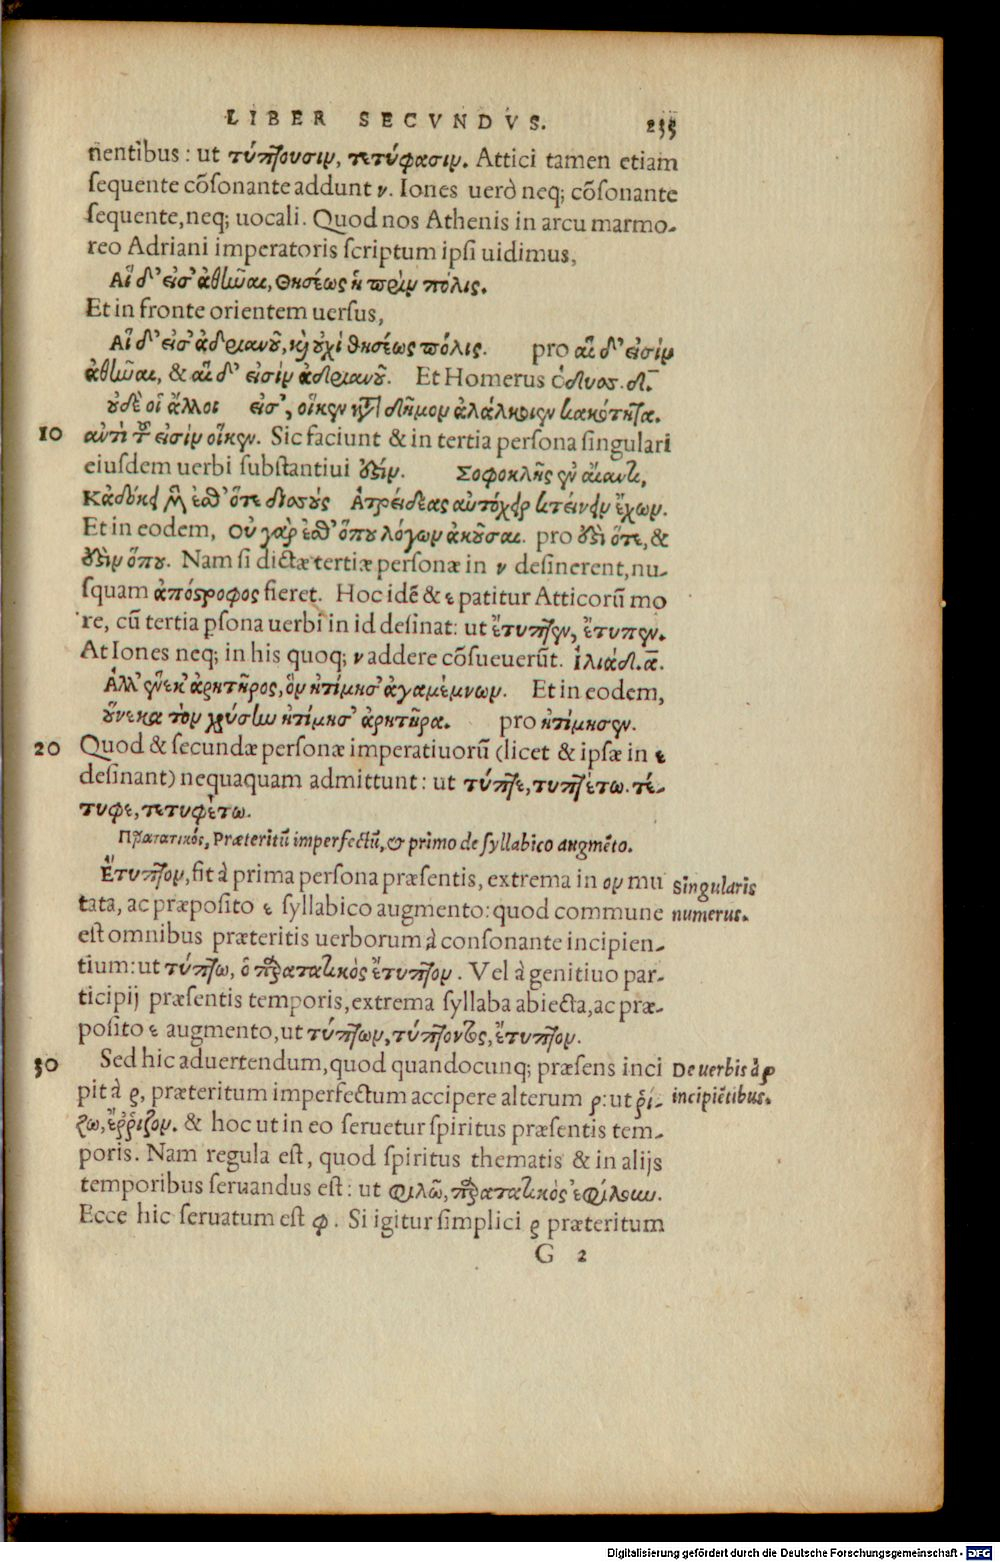 LIBER SECVNDVS. 235
nentibus: ut τύπτουσιν, τετύφασιν. Attici tamen etiam
sequente cõsonante addunt ν. Iones uerò neq; cõsonante
sequente, neq; uocali. Quod nos Athenis in arcu marmo-
reo Adriani imperatoris scriptum ipsi uidimus,
Αἵδ᾽ εἰσ᾽ ἀθῆναι, Θησέως ἡ πρὶν πόλις.
Et in fronte orientem uersus,
Αἵδ᾽ εἰσ᾽ ἀδριανοῦ, κ̀ οὐχὶ θησέως πόλις. pro αἵδ᾽ εἰσὶν
ἀθῆναι, & αἵδ᾽ εἰσὶν ἀδριανοῦ. Et Homerus ὀδυσ. δ.
οὐδὲ οἱ ἄλλοι εἰσ᾽, οἵ κεν δῆμον ἀλάλκοιεν κακότητα.
10 ἀντὶ τοῦ εἰσὶν οἵ κεν. Sic faciunt & in tertia persona singulari
eiusdem uerbi substantiui ἐστίν. Σοφοκλῆς ἐν αἴαντι,
Ἀτρείδεας αὐτόχειρ κτείνειν ἔχων.
Et in eodem, Οὐ γὰρ ἐσθ᾽ ὅπου λόγων ἀκοῦσαι. pro ἐστὶ ὅτε, &
ἐστὶν ὅπου. Nam si dictæ tertiæ personæ in ν desinerent, nu-
squam ἀπόστροφος fieret. Hoc idẽ & ε patitur Atticorũ mo
re, cũ tertia psona uerbi in id desinat: ut ἔτυπτεν, ἔτυπεν.
At Iones neq; in his quoq; ν addere cõsueuerũt. ἰλιάδ. α.
Ἀλλ᾽ ἕνεκ᾽ ἀρητῆρος, ὃν ἠτίμησ᾽ ἀγαμέμνων. Et in eodem,
οὕνεκα τὸν χρύσην ἠτίμησ᾽ ἀρητῆρα. pro ἠτίμησεν.
20 Quod & secundæ personæ imperatiuorũ (licet & ipsæ in ε
desinant) nequaquam admittunt: ut τύπτε, τυπτέτω. τέ-
τυφε, τετυφέτω.
Πρατατικός, Præteritũ imperfectũ, & primo de syllabico augmẽto.
Ἔτυπτον, fit à prima persona præsentis, extrema in ον mu Singularis
tata, ac præposito ε syllabico augmento: quod commune numerus.
est omnibus præteritis uerborum à consonante incipien-
tium: ut τύπτω, ὁ πρατατικὸς ἔτυπτον. Vel à genitiuo par-
ticipij præsentis temporis, extrema syllaba abiecta, ac præ-
posito ε augmento, ut τύπτων, τύπτοντος, ἔτυπτον.
30 Sed hic aduertendum, quod quandocunq; præsens inci De uerbis à ρ
pit à ρ, præteritum imperfectum accipere alterum ρ: ut ῥί- incipiẽtibus.
ζω, ἐῤῥιζον. & hoc ut in eo seruetur spiritus præsentis tem-
poris. Nam regula est, quod spiritus thematis & in alijs
temporibus seruandus est: ut φιλῶ, πρατατικὸς ἐφίλουν.
Ecce hic seruatum est φ. Si igitur simplici ρ præteritum
G 2
Digitalisierung gefördert durch die Deutsche Forschungsgemeinschaft - DFG